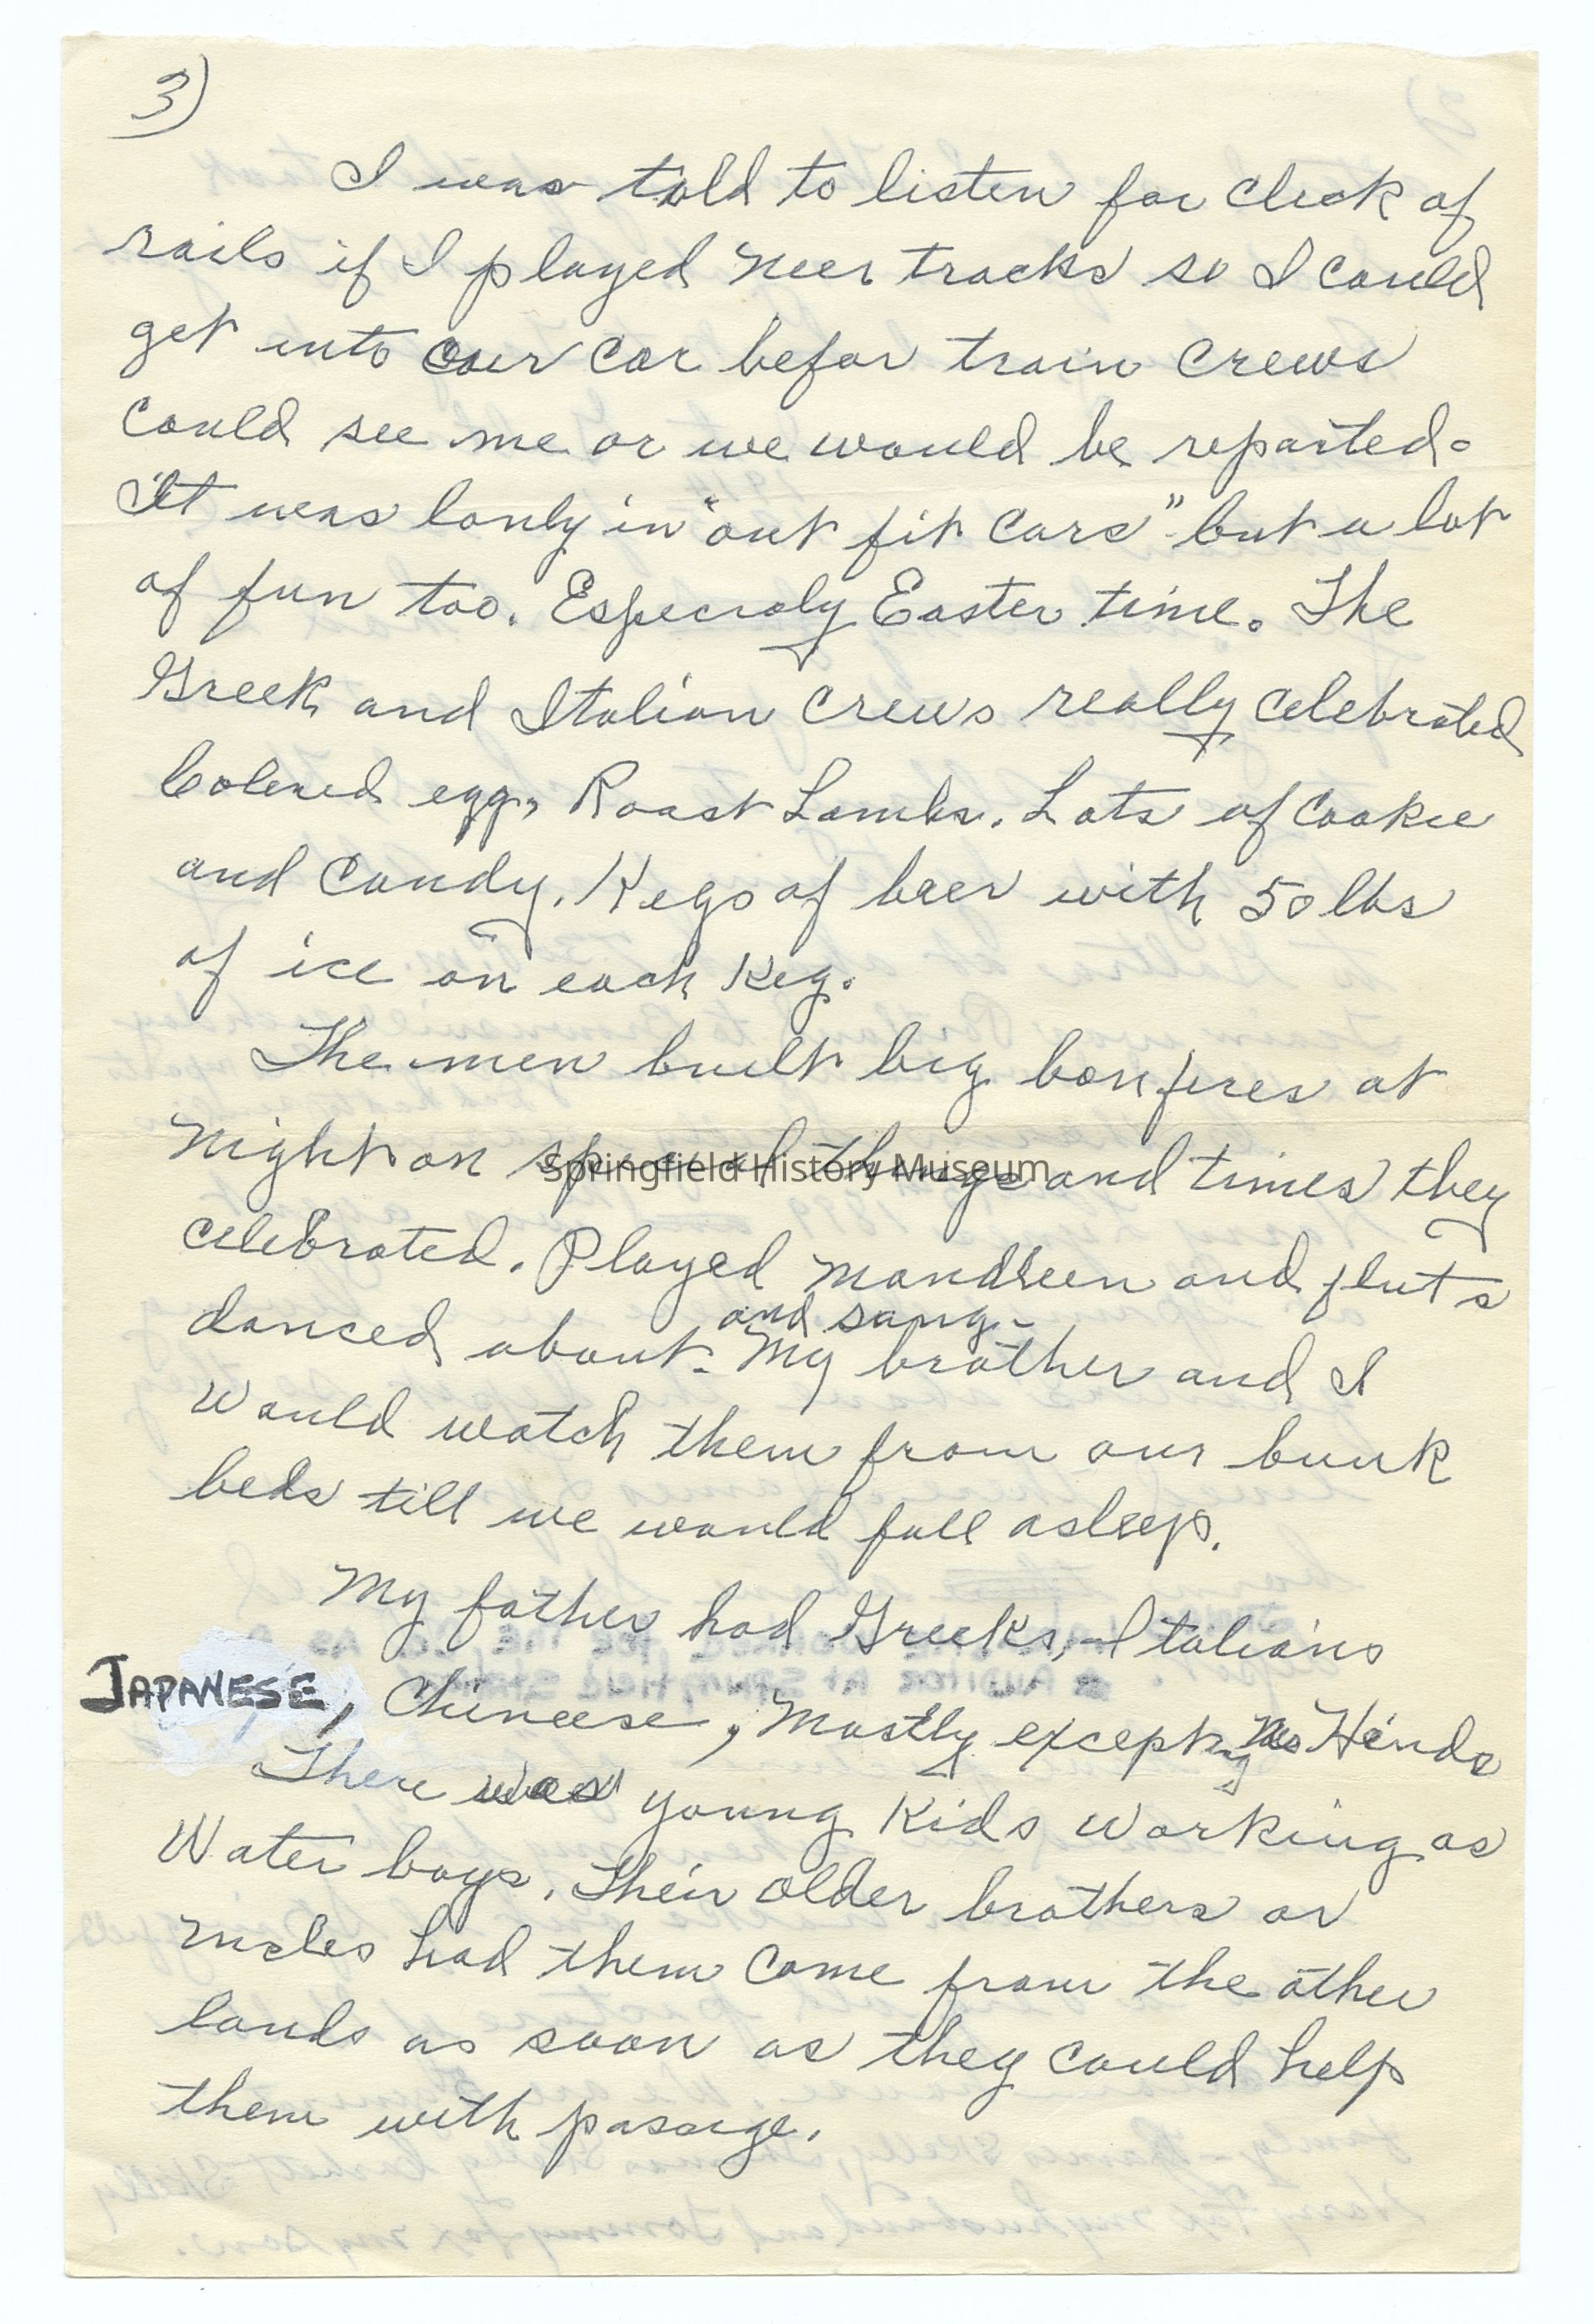 3)
I was told to listen for click of
rails if I played neer tracks so I could
get into our car befor train crews
could see me or we would be reported.
It was lonly in "out fit cars" but a lot
of fun too. Especialy Easter time. The
Greek and Italian crews really celebrated
Colered egg, Roast Lambs. Lots of cookie
and candy. Kegs of beer with 50 lbs
of ice on each keg.
The men built big bonfires at
night on special things and times they
Springfield History Museum
celebrated. Played mandleen and fluts
and sang-
danced about. My brother and I
would watch them from our bunk
beds till we would fall asleep.
My father had Greeks, Italians
JAPANESE, Chineese, Mostly except no Hindo
There was young kids working as
Water boys. Their older brothers or
uncles had them come from the other
lands as soon as they could help
them with passage.